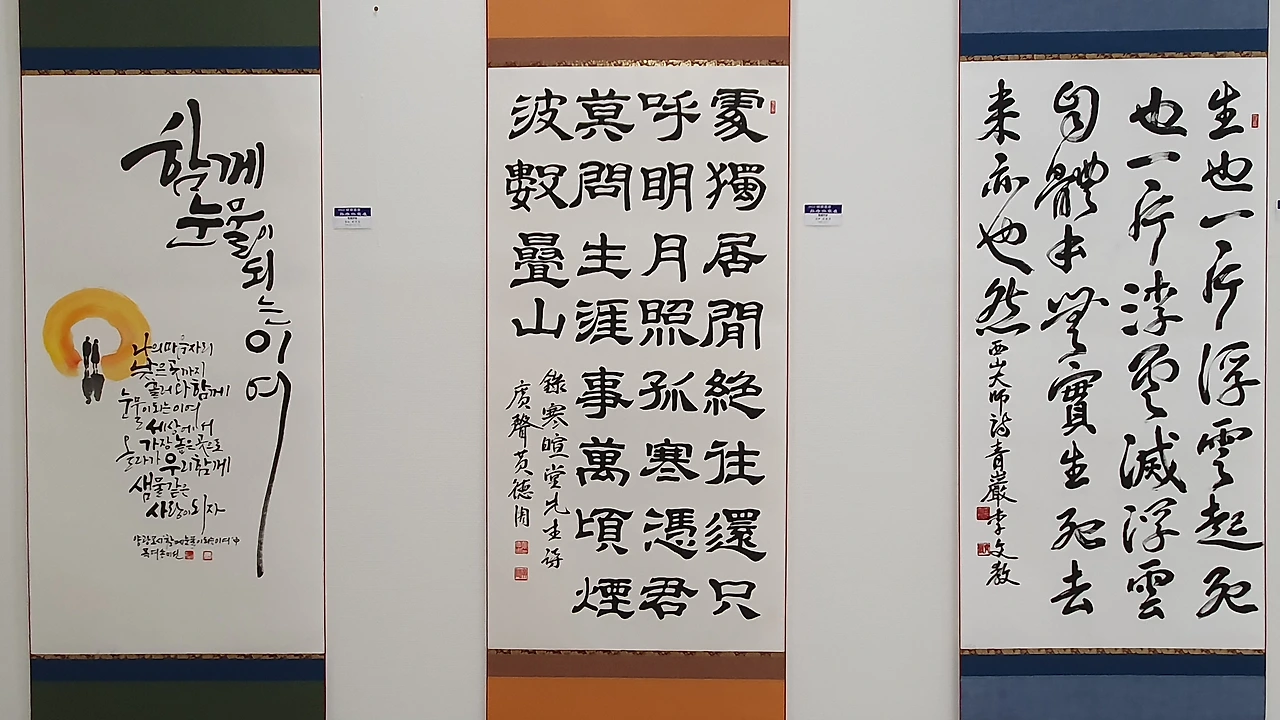 함께
눈물이
되
는
이
여
나의 마음자리
낮은 곳까지
흘러 다 함께
눈물이 되는 이여
세상에서
가장 높은 곳으로
올라가 우리 함께
샘물 같은
사랑이 되자
處獨居閒絶往還只
呼明月照孤寒憑君
莫問生涯事萬頃煙
波數疊山
錄寒暄堂先生詩
黃德周
生也一片浮雲起死
也一片浮雲滅浮雲
自體本無實生死去
来亦也然
西山大師詩 青巖 李文教